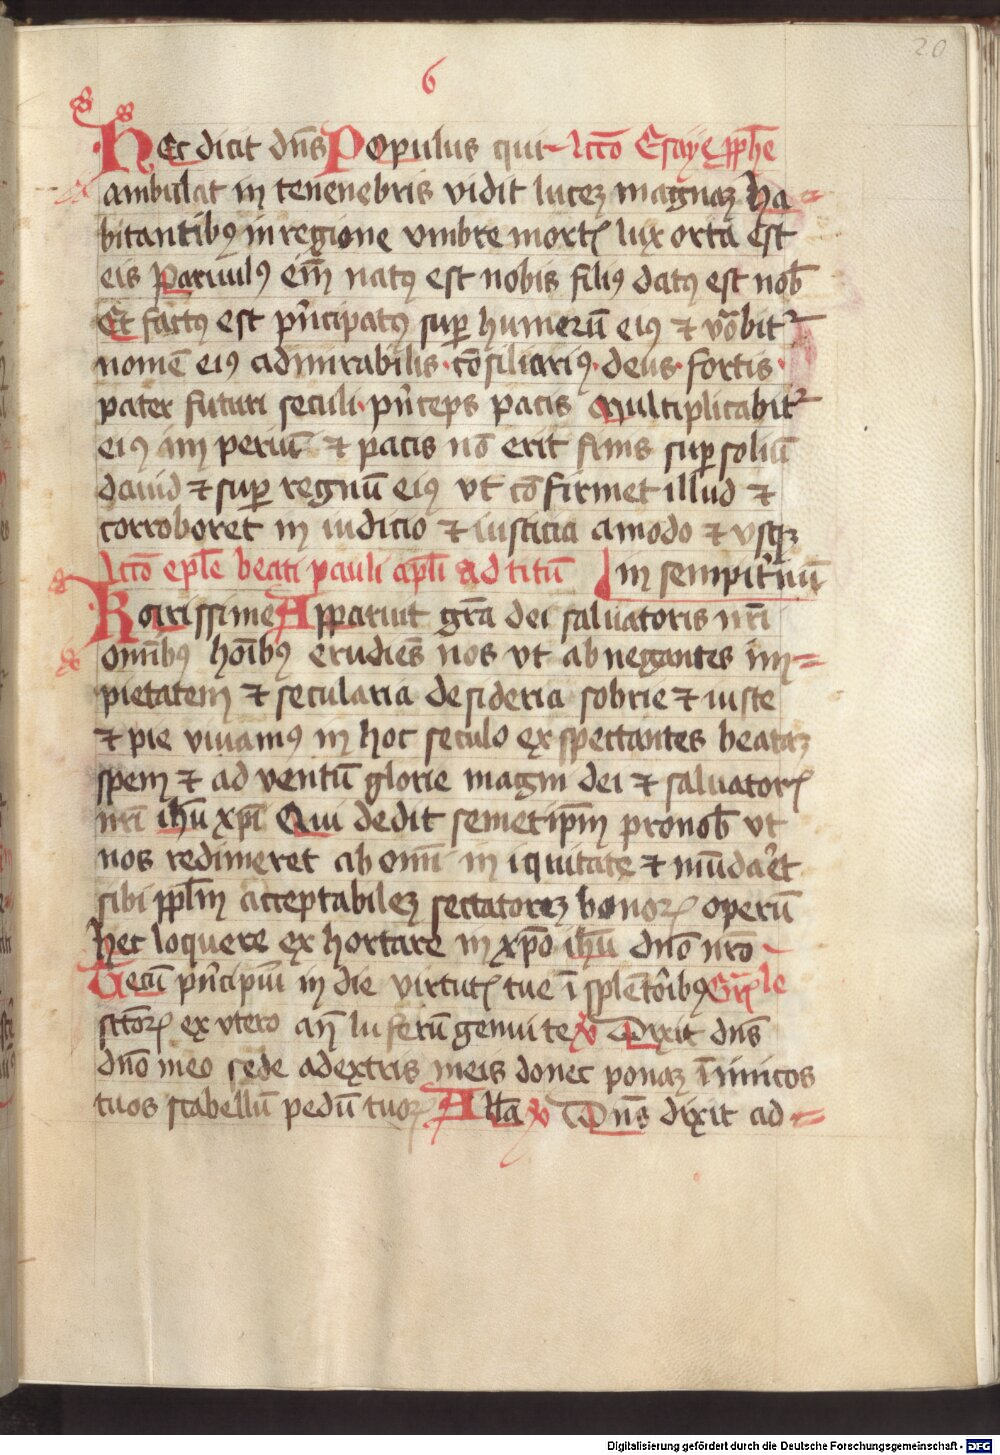 20
6
Hec dicit dn̄s Populus qui Lcc̄o Esaye ꝓph̄e
ambulat in tenenebris vidit luceꝫ magnaꝫ ha=
bitantibꝰ in regione vmbre mortꝭ lux orta est
eis Paruulꝰ em̄ natꝰ est nobis filiꝰ datꝰ est nob̄
Et factꝰ est pͥncipatꝰ suꝑ humerū eiꝰ ⁊ vōbitᷣ
nomē eiꝰ admirabilis · cōsiliariꝰ · deus · fortis ·
pater futuri seculi · pͥnceps pacis Multiplicabitᷣ
eiꝰ im periū ⁊ pacis nō erit finis suꝑ soliū
dauid ⁊ suꝑ regnū eiꝰ vt cōfirmet illud ⁊
corroboret in iudicio ⁊ iusticia amodo ⁊ vsqꝫ
Lcc̄o ep̄le beati pauli ap̄li ad titū in sempit̾nū
Karissime Apparuit gr̄a dei saluatoris nr̄i
om̄ibꝰ hoı̄bꝰ erudiēs nos vt abnegantes im=
pietatem ⁊ secularia desideria sobrie ⁊ iuste
⁊ pie viuamꝰ in hoc seculo exspectantes beataꝫ
spem ⁊ ad ventū glorie magni dei ⁊ saluatorꝭ
nr̄i ih̄u xp̄i Qui dedit semetip̄m pro nob̄ vt
nos redimeret ab om̄i in iquitate ⁊ mūda̾et
sibi ppl̄m acceptabileꝫ sectatoreꝫ bonoꝝ operū
hec loquere ex hortare in xp̄o ih̄u dn̄o nr̄o
Tecū pͥncipiū in die virtutꝭ tue ī splēdoribꝰ Gr̄le
sctōꝝ ex vtero an̄ luciferū genui te ꝟ Dixit dn̄s
dn̄o meo sede adextris meis donec ponaꝫ īimicos
tuos scabellū pedū tuoꝝ All̄a ꝟ Dn̄s dixit ad=
Digitalisierung gefördert durch die Deutsche Forschungsgemeinschaft - DFG